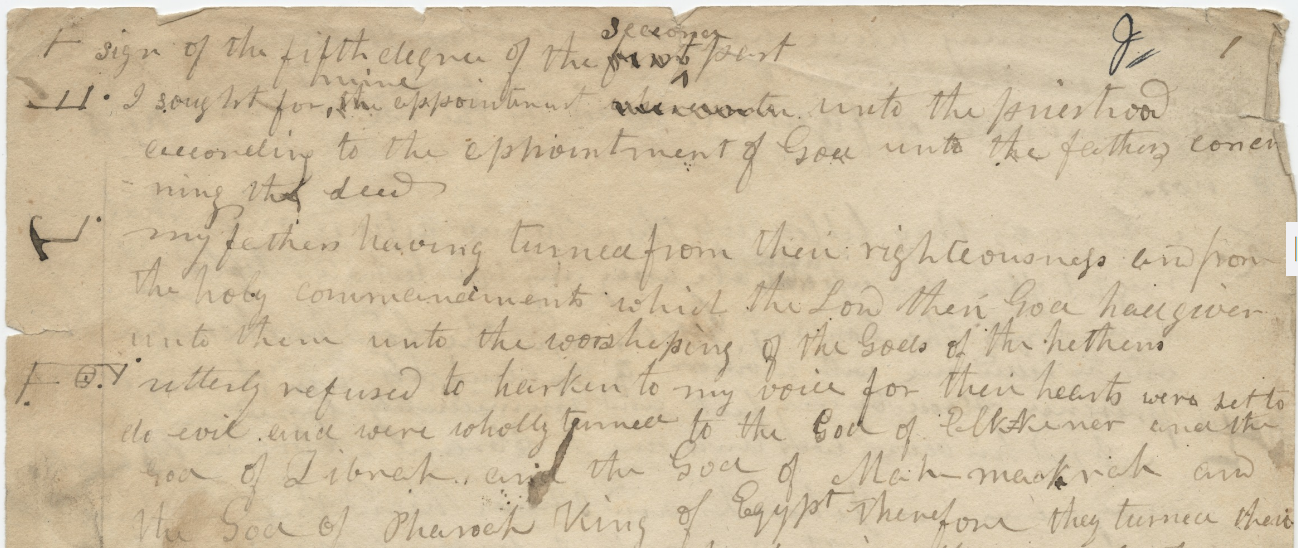 sign of the fifth degree of the first second part J 1
I sought for mine the appointment unto the priesthood
according to the appointment of God unto the fathers concer
ning the seed
my fathers having turned from their righteousness and from
the holy commandments which the Lord their God had given
unto them unto the worshiping of the Gods of the hethens
utterly refused to harken to my voice for their hearts were set to
do evil and were wholly turned to the God of Elkkener and the
God of Zibnah and the God of Mahmackrah and
the God of Pharoah King of Egypt Therefore they turned their